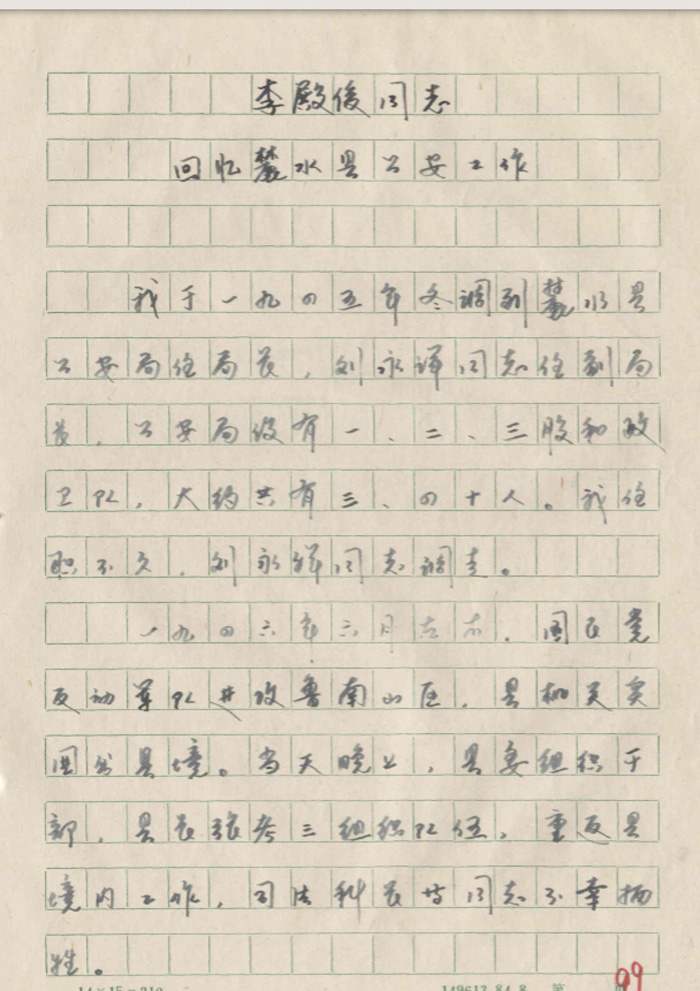 李殿俊同志
回忆麓水县公安工作
我于一九四五年冬调到麓水县
公安局任局长,刘永祥同志任副局
长。公安局设有一、二、三股和政
卫队,大约共有三、四十人。我任
职不久,刘永祥同志调走。
一九四六年六月左右,国民党
反动军队进攻鲁南山区,县机关突
围出县境。当天晚上,县委组织干
部,县长张考三组织队伍,重反县
境内工作,司法科长同志不幸牺
牲。
99